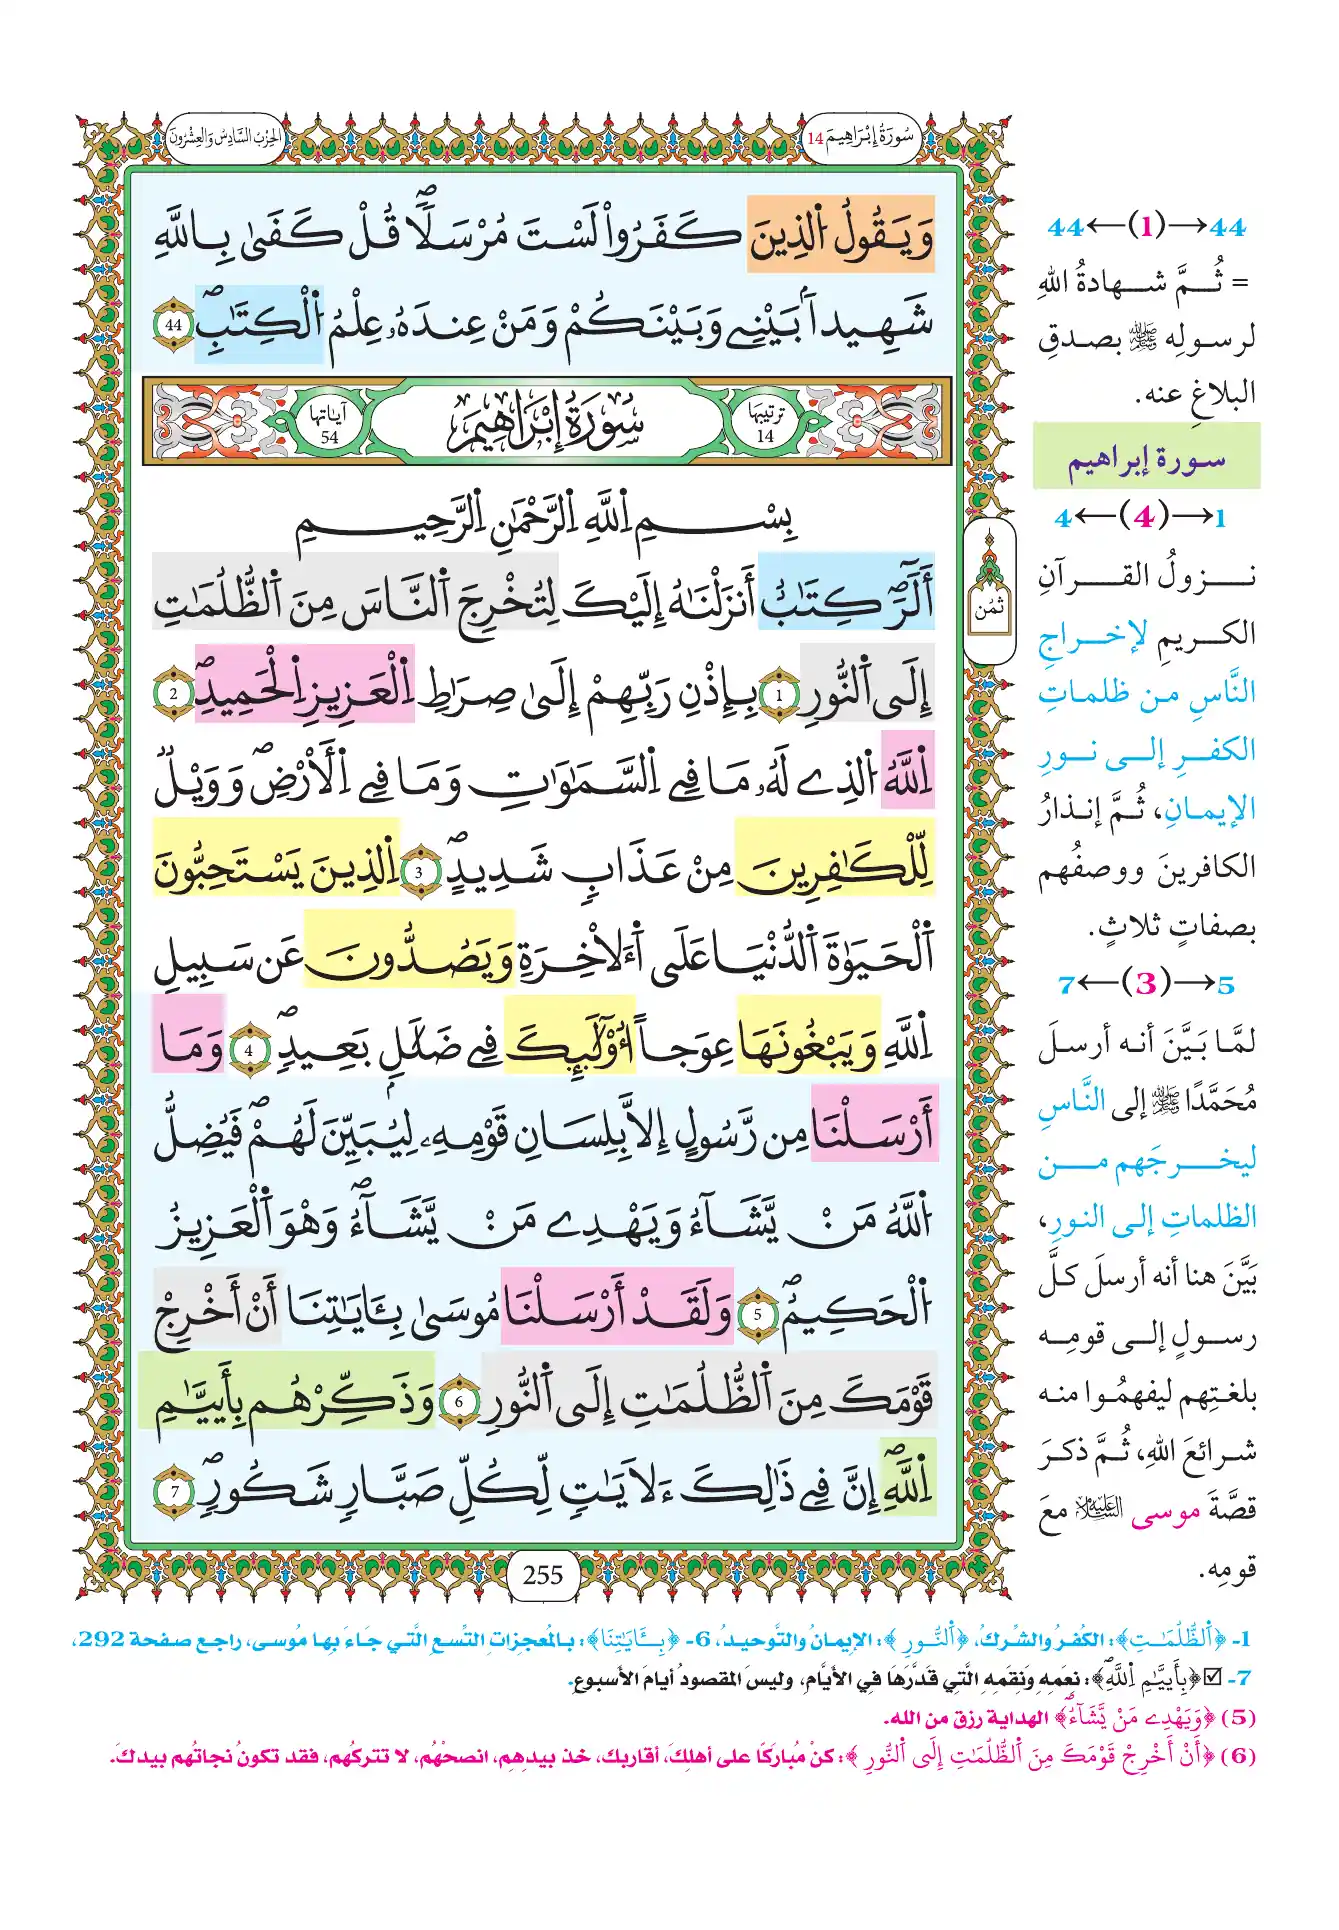 سُورَةُ إِبْرَاهِيمَ 14
الحِزْبُ السَّادِسُ وَالعِشْرُونَ
وَيَقُولُ اُ۬لذِينَ كَفَرُواْ لَسْتَ مُرْسَلاٗۖ قُلْ كَفَىٰ بِاللَّهِ
شَهِيداَۢ بَيْنِے وَبَيْنَكُمْ وَمَنْ عِندَهُۥ عِلْمُ اُ۬لْكِتَٰبِۖ 44
ترتيبها 14
سُورَةُ إِبْرَاهِيمَ
آياتها 54
بِسْمِ اِ۬للَّهِ اِ۬لرَّحْمَٰنِ اِ۬لرَّحِيمِ
أَلَٓرۖ كِتَٰبٌ أَنزَلْنَٰهُ إِلَيْكَ لِتُخْرِجَ اَ۬لنَّاسَ مِنَ اَ۬لظُّلُمَٰتِ
إِلَى اَ۬لنُّورِ 1 بِإِذْنِ رَبِّهِمْ إِلَىٰ صِرَٰطِ اِ۬لْعَزِيزِ اِ۬لْحَمِيدِۖ 2
اِ۬للَّهُ اُ۬لذِے لَهُۥ مَا فِے اِ۬لسَّمَٰوَٰتِ وَمَا فِے اِ۬لْأَرْضِۖ وَوَيْلٞ
لِّلْكَٰفِرِينَ مِنْ عَذَابٖ شَدِيدٍۖ 3 اِ۬لذِينَ يَسْتَحِبُّونَ
اَ۬لْحَيَوٰةَ اَ۬لدُّنْيَا عَلَى اَ۬لْأٓخِرَةِ وَيَصُدُّونَ عَن سَبِيلِ
اِ۬للَّهِ وَيَبْغُونَهَا عِوَجاً اُوْلَٰٓئِكَ فِے ضَلَٰلِۢ بَعِيدٖۖ 4 وَمَا
أَرْسَلْنَا مِن رَّسُولٍ إِلَّا بِلِسَانِ قَوْمِهِۦ لِيُبَيِّنَ لَهُمْۖ فَيُضِلُّ
اُ۬للَّهُ مَنْ يَّشَآءُ وَيَهْدِے مَنْ يَّشَآءُۖ وَهْوَ اَ۬لْعَزِيزُ
اُ۬لْحَكِيمُۖ 5 وَلَقَدْ أَرْسَلْنَا مُوسَىٰ بِـَٔايَٰتِنَا أَنْ أَخْرِجْ
قَوْمَكَ مِنَ اَ۬لظُّلُمَٰتِ إِلَى اَ۬لنُّورِ 6 وَذَكِّرْهُم بِأَيَّيٰمِ
اِ۬للَّهِۖ إِنَّ فِے ذَٰلِكَ ءَلَايَٰتٖ لِّكُلِّ صَبَّارٖ شَكُورٖۖ 7
ثمُن
255
44←(1)→44
= ثُمَّ شهادةُ اللهِ
لرسولِه ﷺ بصدقِ
البلاغِ عنه.
سورة إبراهيم
1→(4)←4
نزولُ القرآنِ
الكريمِ لإخراجِ
النَّاسِ من ظلماتِ
الكفرِ إلى نورِ
الإيمانِ، ثُمَّ إنذارُ
الكافرينَ ووصفُهم
بصفاتٍ ثلاثٍ.
5→(3)←7
لمَّا بَيَّنَ أنه أرسلَ
مُحَمَّدًا ﷺ إلى النَّاسِ
ليخرجَهم من
الظلماتِ إلى النورِ،
بَيَّنَ هنا أنه أرسلَ كلَّ
رسولٍ إلى قومِه
بلغتِهم ليفهمُوا منه
شرائعَ اللهِ، ثُمَّ ذكرَ
قصَّةَ موسى عليه السلام معَ
قومِه.
1- ﴿اَ۬لظُّلُمَٰتِ﴾: الكُفرُ والشِّركُ، ﴿اَ۬لنُّورِ﴾: الإيمانُ والتَّوحيدُ، 6- ﴿بِـَٔايَٰتِنَا﴾: بالمُعجِزاتِ التِّسعِ الَّتي جَاءَ بِها مُوسى، راجع صفحة 292،
7- ☑ ﴿بِأَيَّيٰمِ اِ۬للَّهِۖ﴾: نِعَمِهِ وَنِقَمِهِ الَّتي قَدَّرَهَا في الأيَّامِ، وليسَ المقصودُ أيامَ الأسبوعِ.
(5) ﴿وَيَهْدِے مَنْ يَّشَآءُۖ﴾ الهداية رزق من الله.
(6) ﴿أَنْ أَخْرِجْ قَوْمَكَ مِنَ اَ۬لظُّلُمَٰتِ إِلَى اَ۬لنُّورِ﴾: كنْ مُباركًا على أهلِكَ، أقاربِك، خذ بيدِهِم، انصحْهُم، لا تتركهُم، فقد تكونُ نجاتُهم بيدكَ.